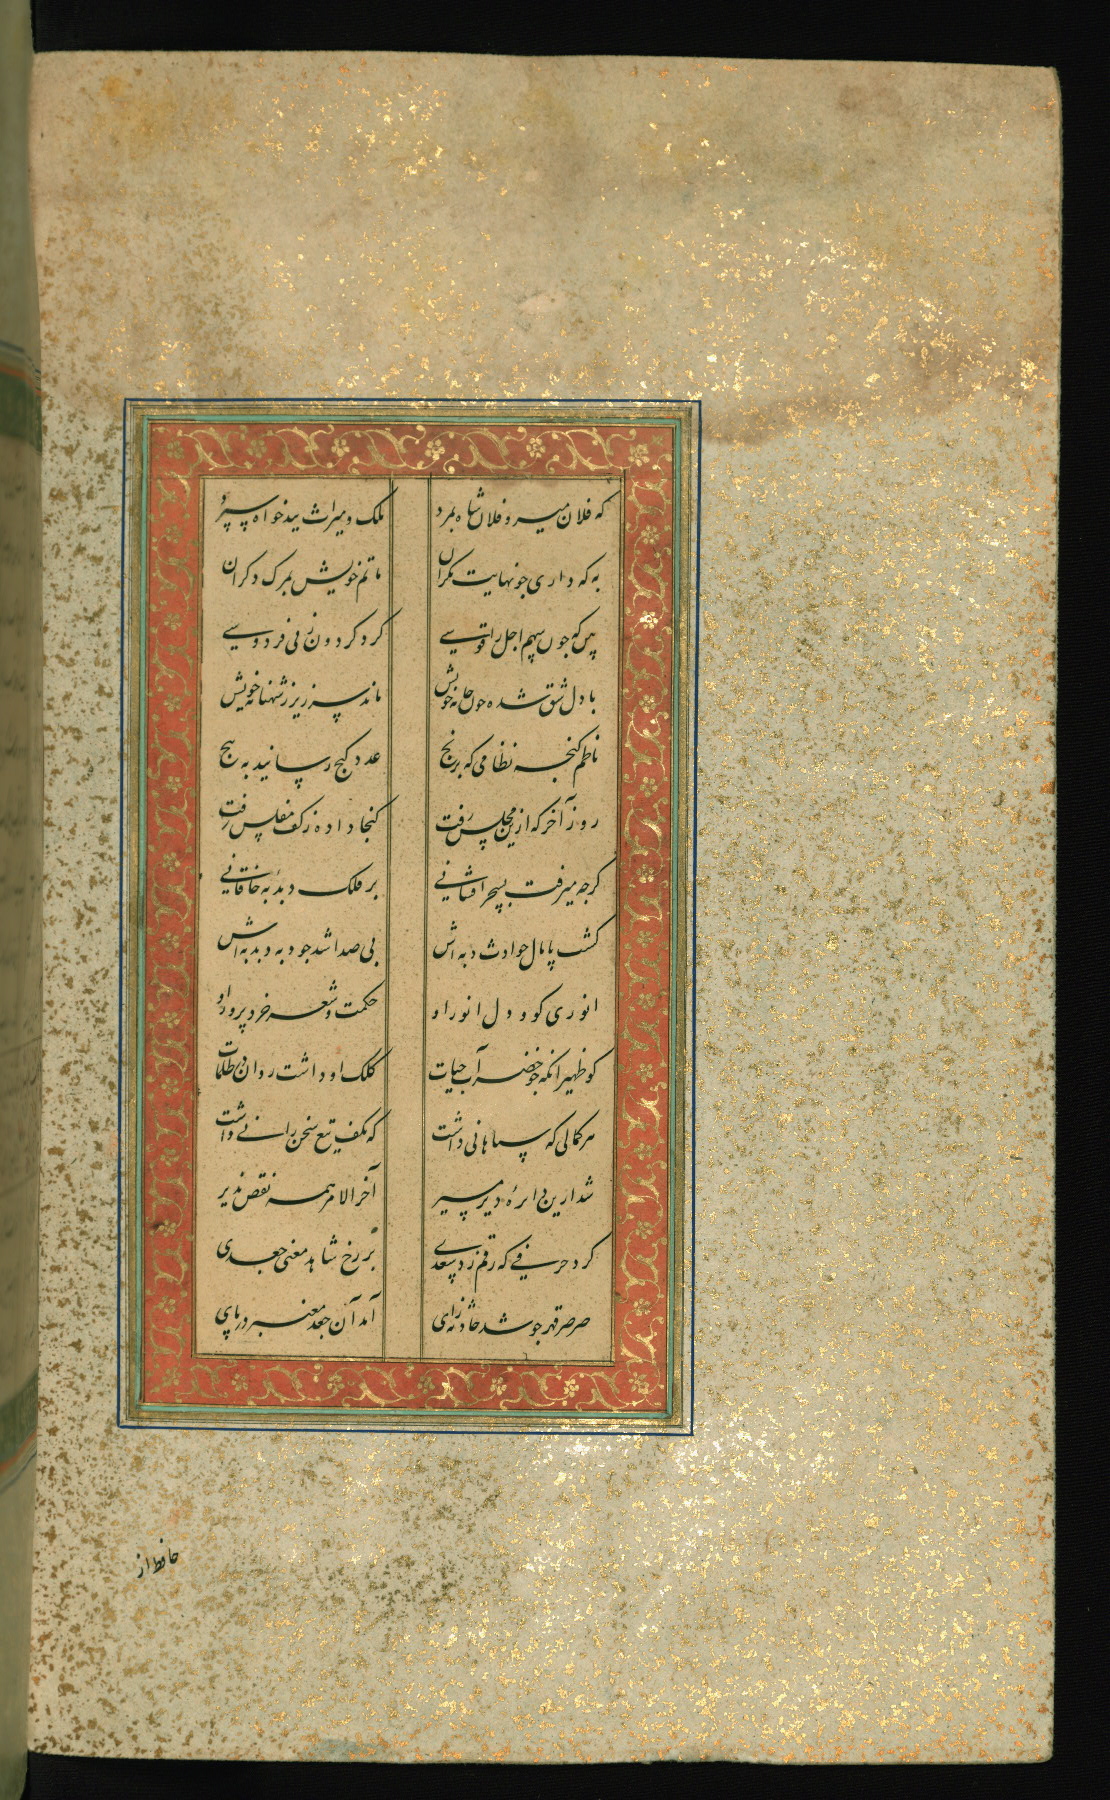 که فلان میر و فلان شاه بمرد ملک و میراث ببدخواه سپرد
به که داری جو نهایت نکران ماتم خویش بمرک دکران
پس که جون سهم اجل را قوسی کرد کردون زنی فردوسی
با دل شق شده جون خامه خویش ماند سر زیر ز شهنامه خویش
ناظم کنجه نظامی که برنج عدد کنج رسانید به پنج
روز آخر که ازین مجلس رفت کنجها داده ز کف مفلس رفت
کرجه میرفت بسحر افشانی بر فلک دبدبه خاقانی
کشت پامال حوادث دبه اش بی صدا شد جو دبه دبدبه اش
انوری کو و دل انور او حکمت و شعر خرد پرور او
کو ظهیر انکه جو خضر آب حیات کلک او داشت روان در ظلمات
هر کمالی که سپاهانی داشت که بکف تیغ سخن رانی داشت
شد ازین دایره دیر مسیر آخر الامر همه نقص پذیر
کرد حرفی که رقم زد سعدی بر رخ شاهد معنی جعدی
صرصر قهر جو شد حادثه زای آمد آن جعد معنبر در پای
حافظ از